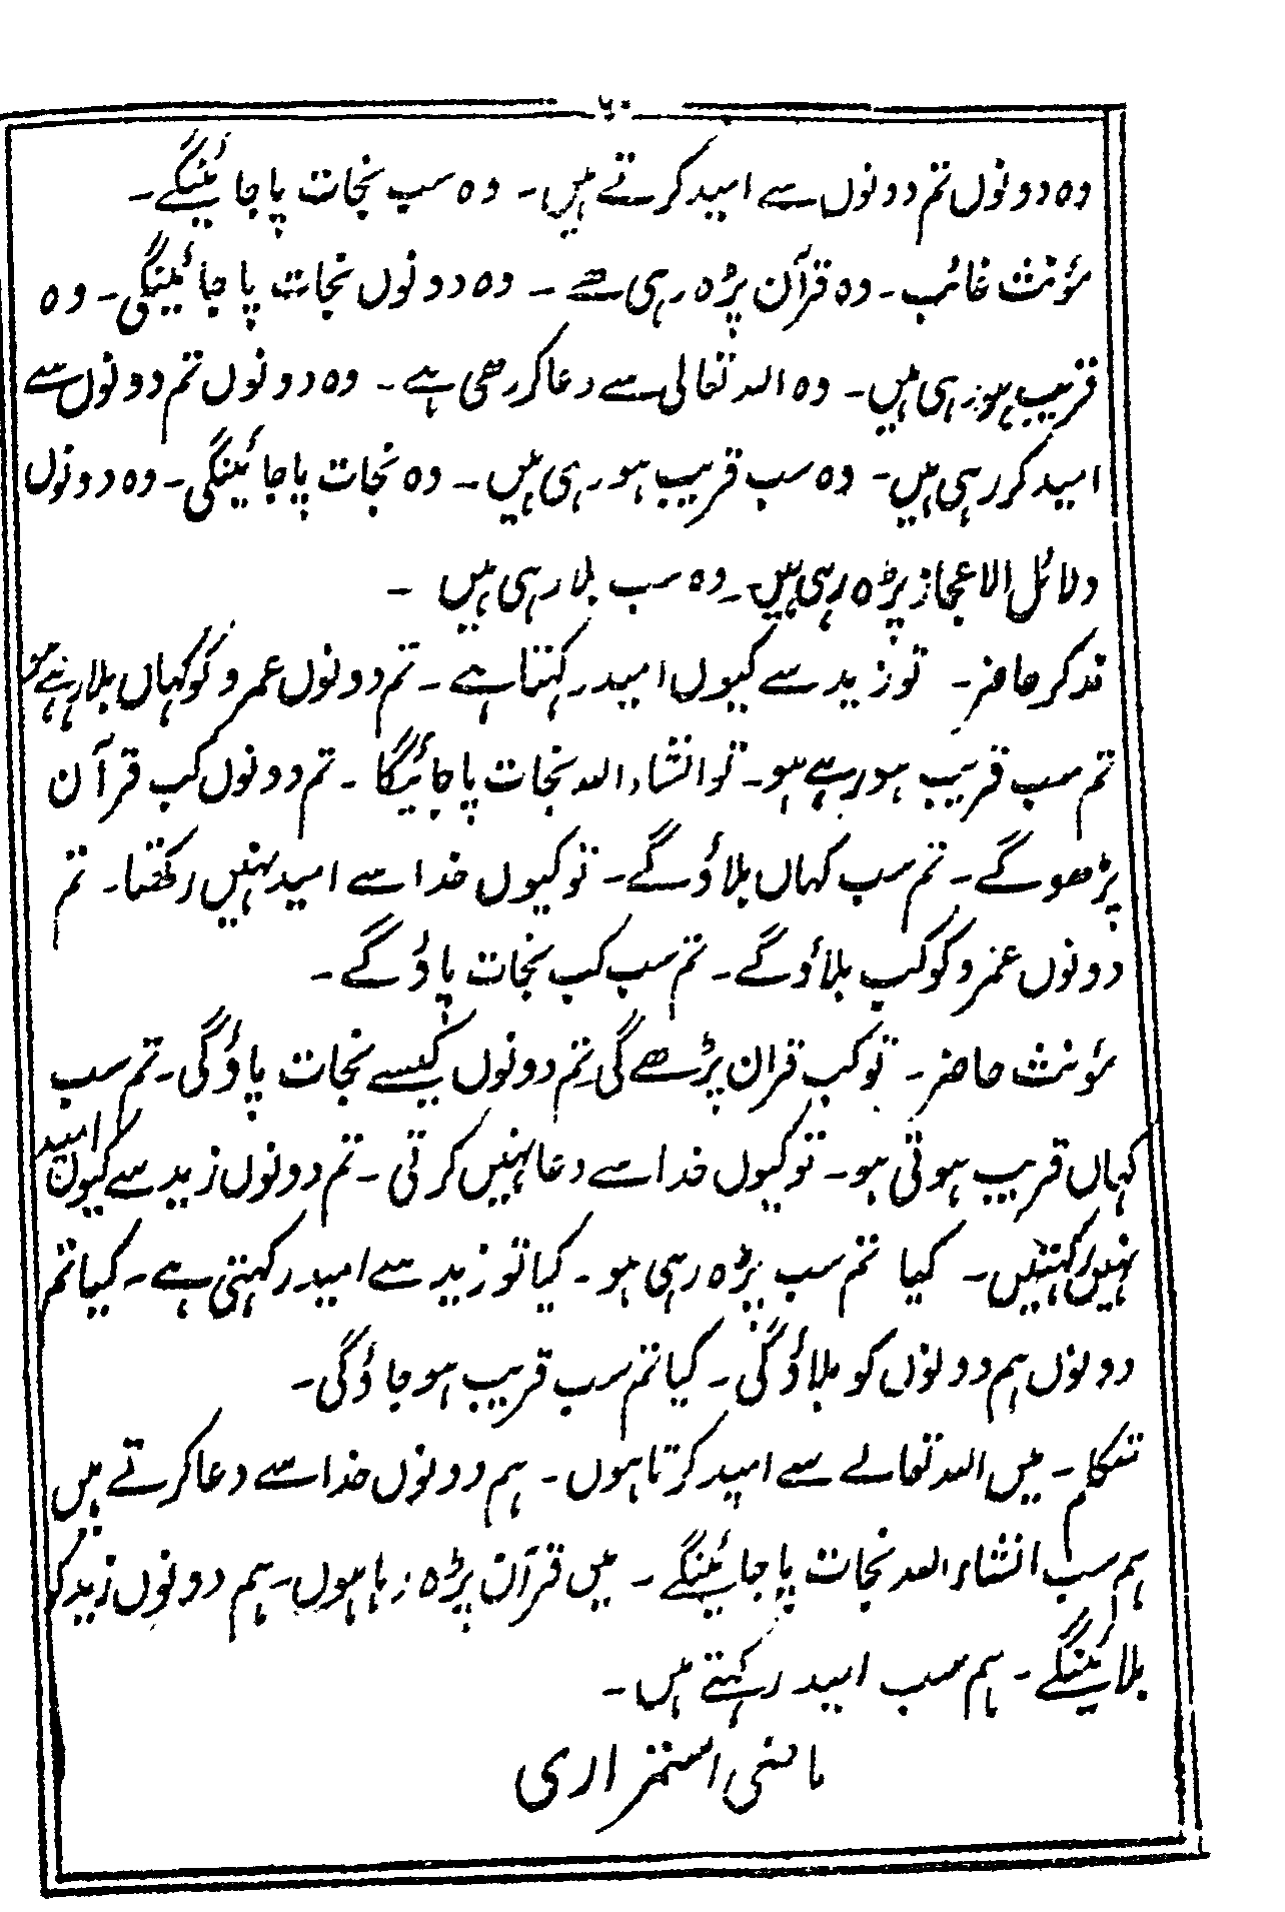 ۶۰
وہ دونوں تم دونوں سے امید کرتے ہیں۔ وہ سب نجات پا جائینگے۔
مؤنث غائب۔ وہ قرآن پڑہ رہی ہے۔ وہ دونوں نجات پا جائینگی۔ وہ
قریب ہورہی ہیں۔ وہ اللہ تعالیٰ سے دعا کر رھی ہے۔ وہ دونوں تم دونوں سے
امید کر رہی ہیں۔ وہ سب قریب ہو رہی ہیں۔ وہ نجات پا جائینگی۔ وہ دونوں
دلائل الاعجاز پڑہ رہی ہیں۔ وہ سب بلا رہی ہیں۔
مذکر حاضر۔ تو زید سے کیوں امید رکہتا ہے۔ تم دونوں عمرو کو کہاں بلا رہے ہو
تم سب قریب ہو رہے ہو۔ تو انشاء اللہ نجات پا جائیگا۔ تم دونوں کب قرآن
پڑھو گے۔ تم سب کہاں بلاؤ گے۔ تو کیوں خدا سے امید نہیں رکھتا۔ تم
دونوں عمرو کو کب بلاؤ گے۔ تم سب کب نجات پاؤ گے۔
مؤنث حاضر۔ تو کب قران پڑھے گی۔ تم دونوں کیسے نجات پاؤ گی۔ تم سب
کہاں قریب ہوتی ہو۔ تو کیوں خدا سے دعا نہیں کرتی۔ تم دونوں زید سے کیوں امید
نہیں رکہتیں۔ کیا تم سب پڑہ رہی ہو۔ کیا تو زید سے امید رکہتی ہے۔ کیا تم
دونوں ہم دونوں کو بلاؤ گی۔ کیا تم سب قریب ہو جاؤ گی۔
متکلم۔ میں اللہ تعالے سے امید کرتا ہوں۔ ہم دونوں خدا سے دعا کرتے ہیں
ہم سب انشاء اللہ نجات پا جائینگے۔ میں قرآن پڑہ رہا ہوں۔ ہم دونوں زید کو
بلائینگے۔ ہم سب امید رکہتے ہیں۔
ماضی استمراری